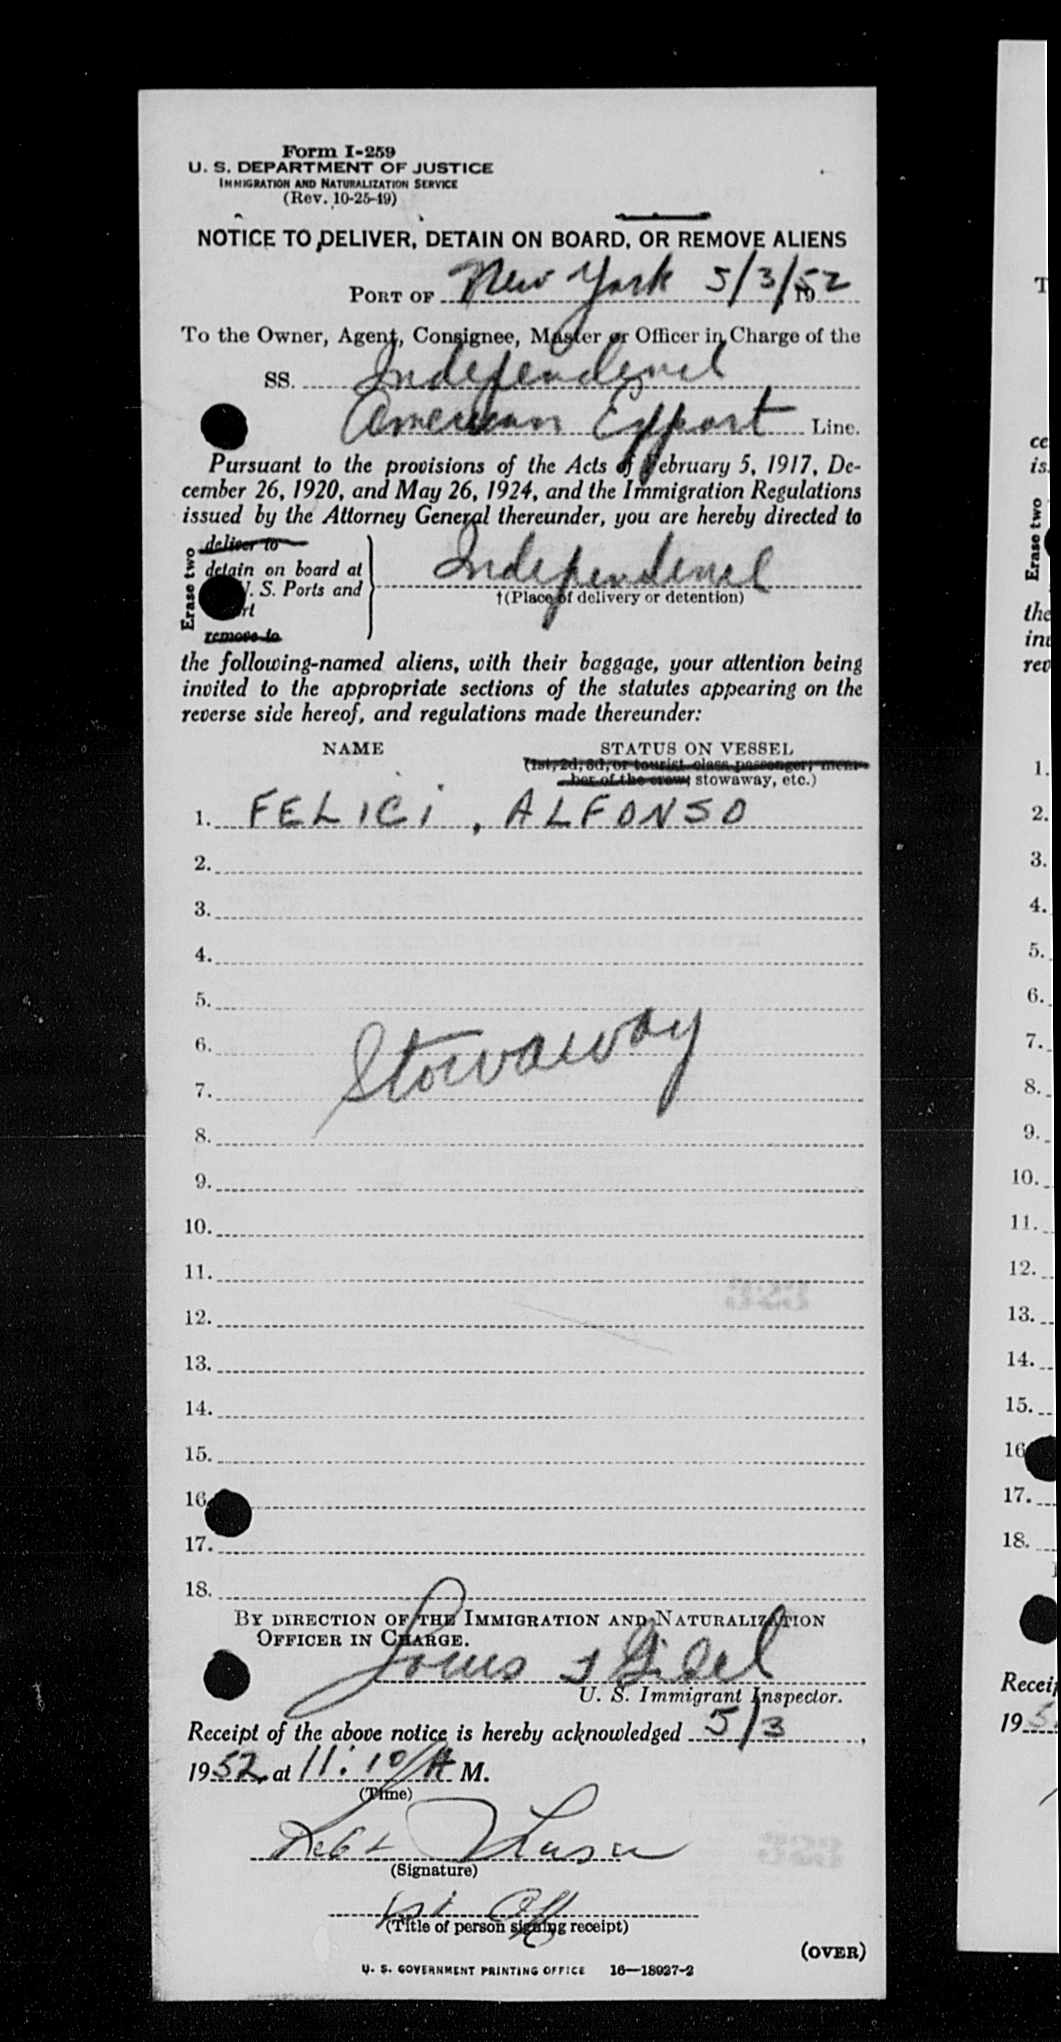 Form I-259
U. S. DEPARTMENT OF JUSTICE
IMMIGRATION AND NATURALIZATION SERVICE
(Rev. 10-25-49)
NOTICE TO DELIVER, DETAIN ON BOARD, OR REMOVE ALIENS
PORT OF New York 5/3/1952
To the Owner, Agent, Consignee, Master or Officer in Charge of the
SS. Independence
American Export Line.
Pursuant to the provisions of the Acts of February 5, 1917, De-
cember 26, 1920, and May 26, 1924, and the Immigration Regulations
issued by the Attorney General thereunder, you are hereby directed to
Erase two
deliver to
detain on board at
U. S. Ports and
remove to
Independence
†(Place of delivery or detention)
the following-named aliens, with their baggage, your attention being
invited to the appropriate sections of the statutes appearing on the
reverse side hereof, and regulations made thereunder:
NAME STATUS ON VESSEL
(1st, 2d, 3d, or tourist class passenger, mem-
ber of the crew, stowaway, etc.)
1. FELICI, ALFONSO
2.
3.
4.
5.
6.
Stowaway
7.
8.
9.
10.
11.
12.
13.
14.
15.
16.
17.
18.
BY DIRECTION OF THE IMMIGRATION AND NATURALIZATION
OFFICER IN CHARGE.
Louis
U. S. Immigrant Inspector.
Receipt of the above notice is hereby acknowledged 5/3,
1952, at 11:10 A M.
(Time)
(Signature)
1st Off
(Title of person signing receipt)
(OVER)
U. S. GOVERNMENT PRINTING OFFICE 16—18927-2
T
ce
is
Erase two
the
inv
rev
1.
2.
3.
4.
5.
6.
7.
8.
9.
10.
11.
12.
13.
14.
15.
16
17.
18.
Recei
19